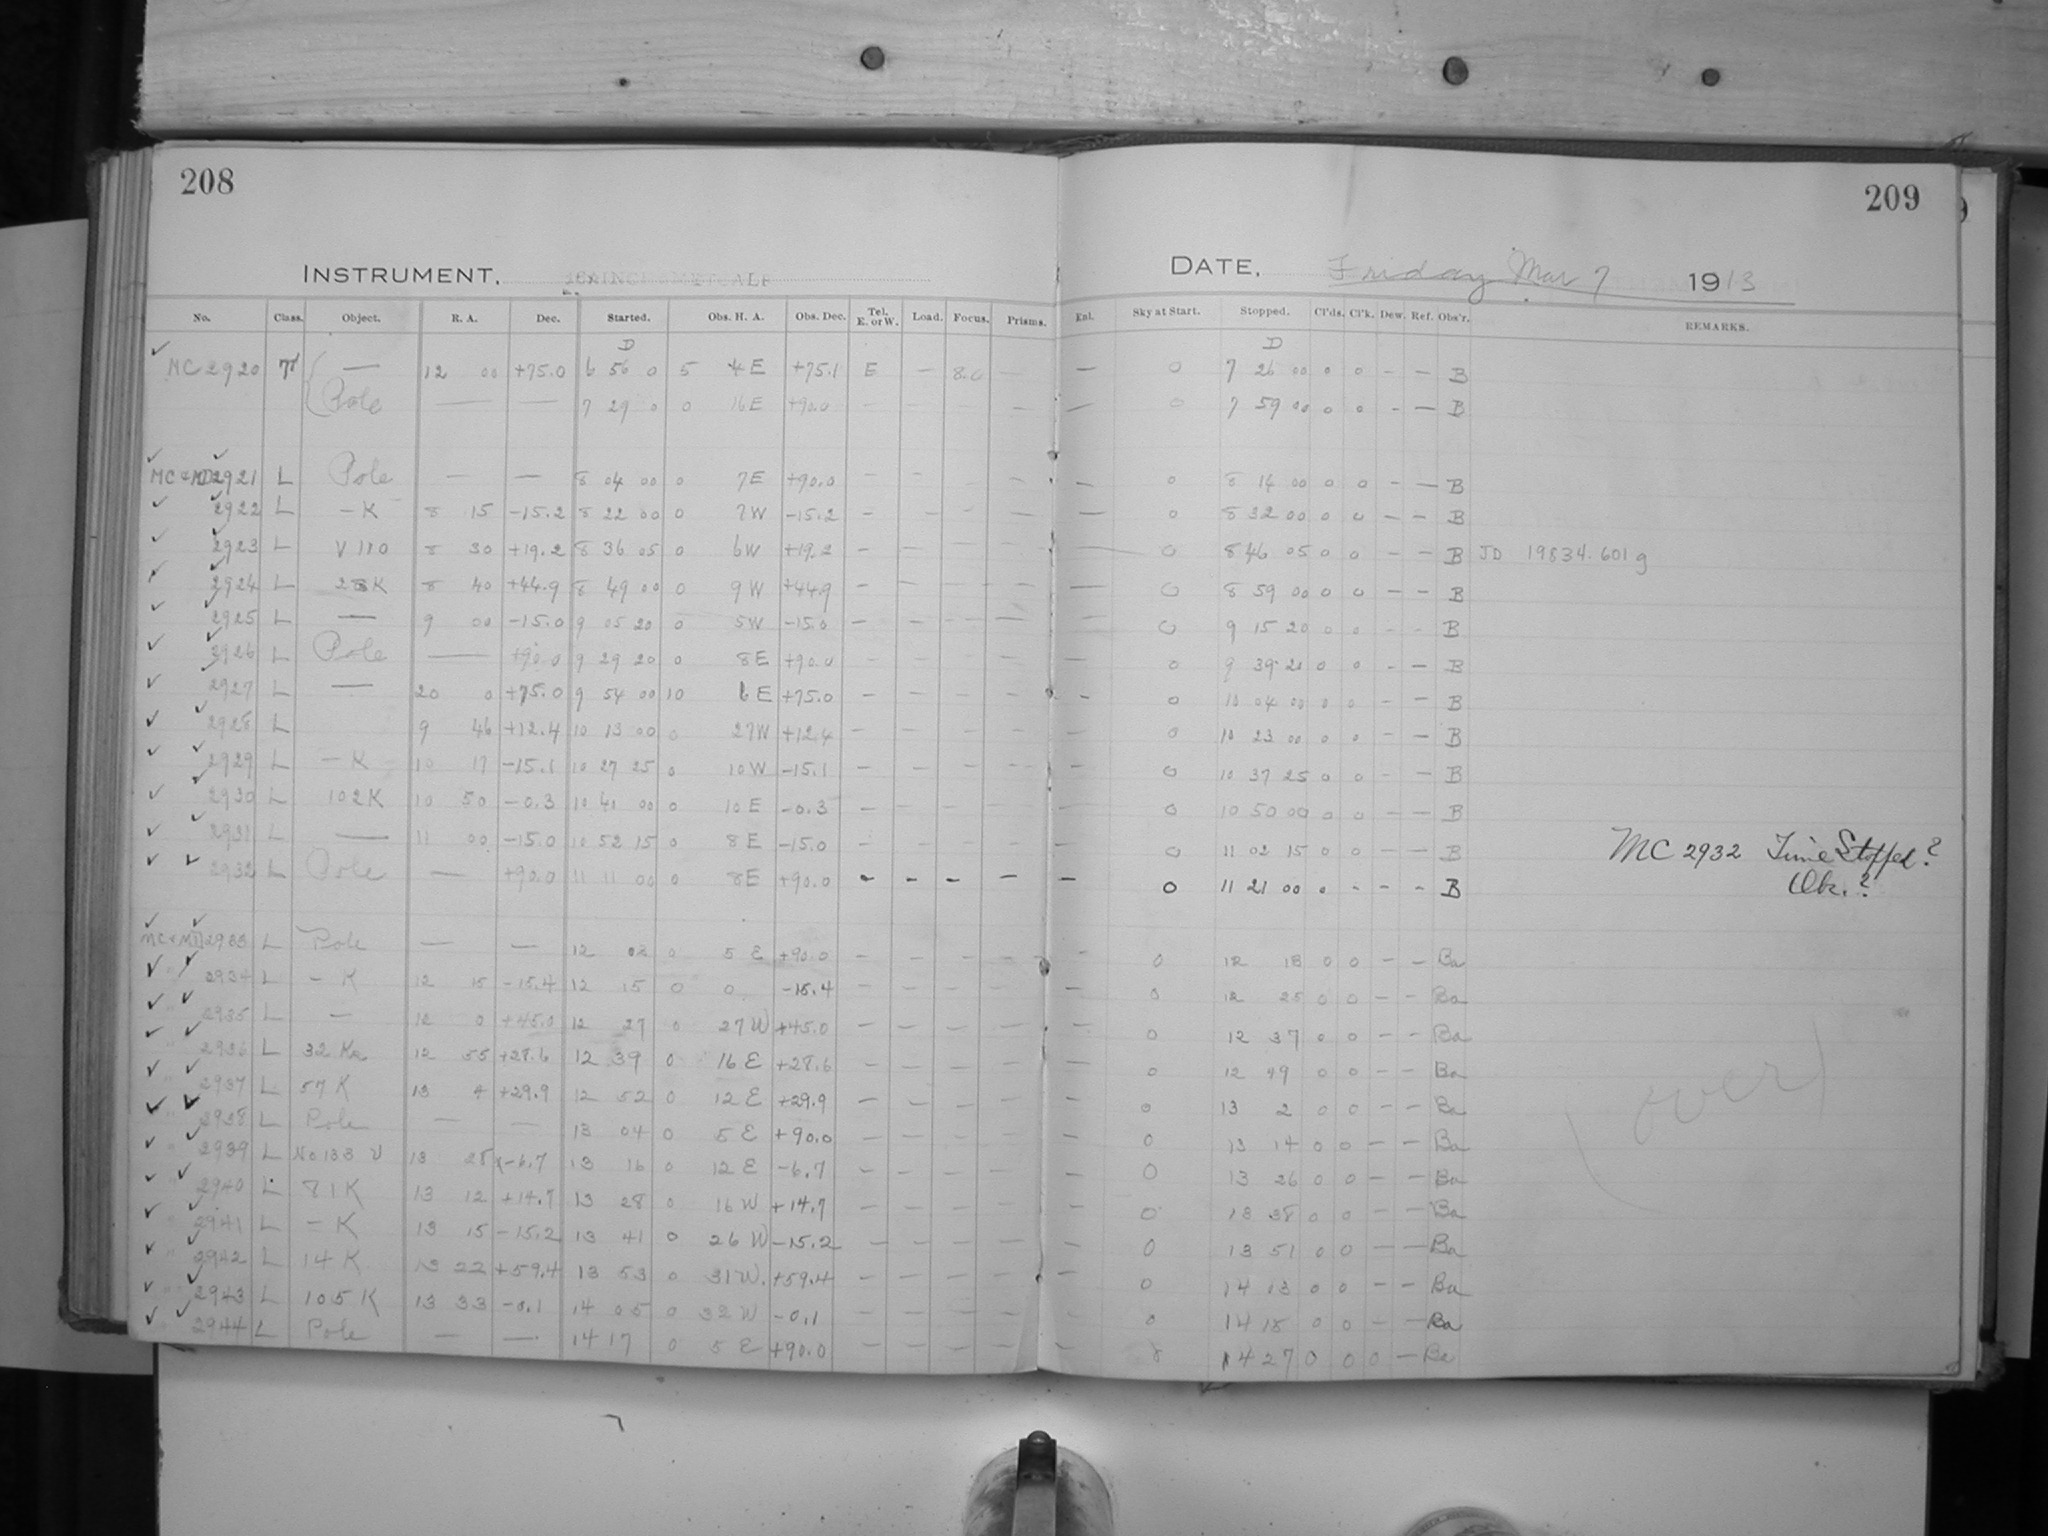 208
INSTRUMENT. 16 INCH METCALF
No. Class. Object. R. A. Dec. Started. Obs. H. A. Obs. Dec. Tel. E. or W. Load. Focus. Prisms.
D
MC 2920 — 12 00 +75.0 6 56 0 5 4 E +75.1 E —
Pole — — 7 29 0 0 16 E +90.0 — — — —
MC & MD 2921 L Pole — — 8 04 00 0 7 E +90.0 — —
2922 L – K 8 15 –15.2 8 22 00 0 7 W –15.2 –
2923 L V 110 8 30 +19.2 8 36 05 0 6 W +19.2 –
2924 L 28 K 8 40 +44.9 8 49 00 0 9 W +44.9 –
2925 L — 9 00 –15.0 9 05 20 0 5 W –15.0 –
2926 L Pole — +90.0 9 29 20 0 8 E +90.0 –
2927 L — 20 0 +75.0 9 54 00 10 6 E +75.0 –
2928 L 9 46 +12.4 10 13 00 0 27 W +12.4 –
2929 L – K 10 17 –15.1 10 27 25 0 10 W –15.1 –
2930 L 102 K 10 50 –0.3 10 40 00 0 10 E –0.3 –
2931 L — 11 00 –15.0 10 52 15 0 8 E –15.0 –
2932 L Pole — +90.0 11 11 00 0 8 E +90.0 – – – –
MC & MD 2933 L Pole — — 12 08 0 5 E +90.0 – – – –
" 2934 L – K 12 15 –15.4 12 15 0 0 –15.4 – – – –
" 2935 L — 12 0 +45.0 12 27 0 27 W +45.0 – – – –
" 2936 L 32 Ka 12 55 +28.6 12 39 0 16 E +28.6 – – – –
" 2937 L 57 K 13 4 +29.9 12 52 0 12 E +29.9 – – – –
" 2938 L Pole — — 13 04 0 5 E +90.0 – – – –
" 2939 L No 133 V 13 28 –6.7 13 16 0 12 E –6.7 – – – –
" 2940 L 81 K 13 12 +14.7 13 28 0 16 W +14.7 – – – –
" 2941 L – K 13 15 –15.2 13 41 0 26 W –15.2 – – – –
" 2942 L 14 K 13 22 +59.4 13 53 0 31 W. +59.4 – – – –
" 2943 L 105 K 13 33 –0.1 14 05 0 32 W –0.1 – – – –
" 2944 L Pole — — 14 17 0 5 E +90.0 – – – –
209
DATE, Friday Mar 7 1913
Enl. Sky at Start. Stopped. Cl'ds. Cl'k. Dew. Ref. Obs'r. REMARKS.
D
— 0 7 26 00 0 0 – – B
— 0 7 59 00 0 0 – – B
– 0 8 14 00 0 0 – – B
— 0 8 32 00 0 0 – – B
— 0 8 46 05 0 0 – – B JD 19834.601 g
— 0 8 59 00 0 0 – – B
— 0 9 15 20 0 0 – – B
– 0 9 39 20 0 0 – – B
– 0 10 04 00 0 0 – – B
– 0 10 23 00 0 0 – – B
– 0 10 37 25 0 0 – – B
– 0 10 50 00 0 0 – – B
– 0 11 02 15 0 0 – – B
– 0 11 21 00 0 – – – B
MC 2932 Time Stopped?
Ok.?
– 0 12 18 0 0 – – Ba
– 0 12 25 0 0 – – Ba
– 0 12 37 0 0 – – Ba
– 0 12 49 0 0 – – Ba
– 0 13 2 0 0 – – Ba
– 0 13 14 0 0 – – Ba
– 0 13 26 0 0 – – Ba
– 0 13 38 0 0 – – Ba
– 0 13 51 0 0 – – Ba
– 0 14 03 0 0 – – Ba
– 0 14 15 0 0 – – Ba
– 14 27 0 0 0 – Ba
(over)